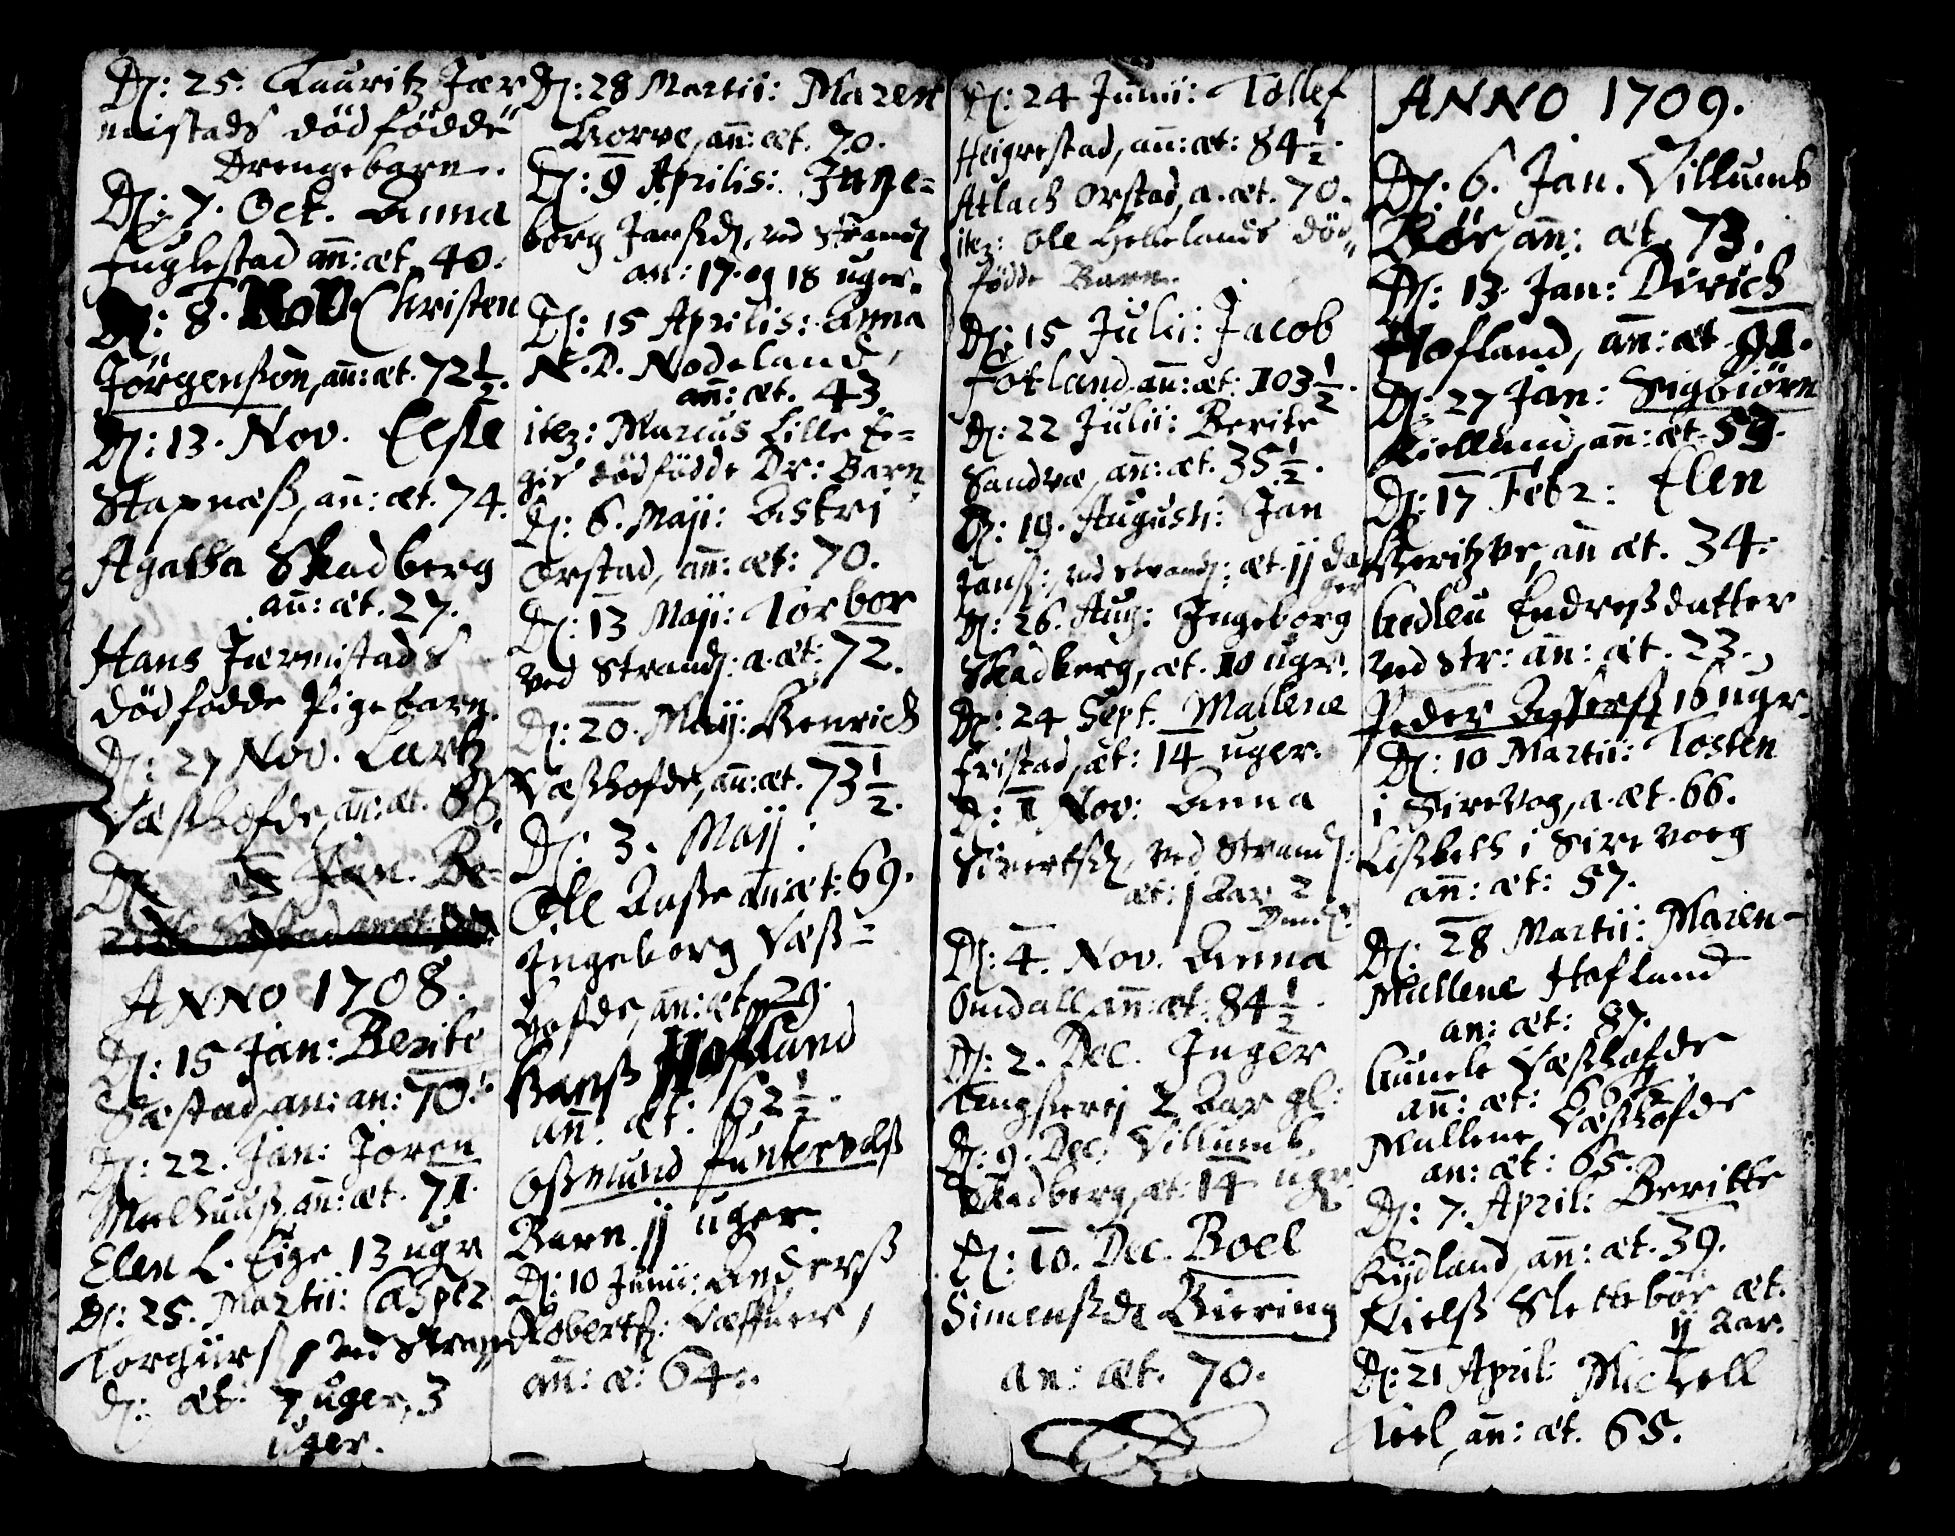 Dn: 25. Lauritz Jær
mistads dödfödde
Drengebarn.
Dn: 7. Oct. Anna
Fuglestad añ: æt. 40.
Dn: 8. Nov. Christen
Jörgensön, añ: æt. 72½.
Dn: 13. Nov. Elsle
Stapnæß, añ: æt. 74.
Agatha Skadberg
añ: æt. 27.
Hans Jærmistads
dödfödde Pigebarn.
Dn: 27 Nov. Lartz
Væshofde, añ: æt.
Dn: Jan. Be-
ANNO 1708.
Dn: 15 Jan: Berite
Sæstad, an: an: 70.
Dn: 22. Jan: Joren
Meelhuuß, añ: æt. 71.
Elen L. Eige 13 ugr
Dn: 25. Martii: Casper
Torgiirß ved Strand
dn: æt: 7 uger, 3
uger.
Dn: 28 Martii: Maren
Horve, añ: æt. 70.
Dn: 9 Aprilis: Inge=
borg Janßdn, ved Strandn
an: 17. og 18 uger.
Dn: 15 Aprilis: Anna
N. D. Nodeland,
añ: æt. 43
item: Marcus Lille Ei=
gis dödfödde Dr: Barn
Dn: 6. Maji: Astri
Ørstad, añ: æt: 70.
Dn: 13 Maji: Torbor
ved Strandn: a. æt: 72.
Dn: 20. Maij: Henrich
Væshofde, añ: æt. 73½.
Dn: 3. Maij:
Ole Aaße añ: æt: 69.
Ingeborg Væß=
hofde, an: æt. 29.
Hanß Hofland
añ: æt: 62½.
Oßmund Funtervalß
Barn jj uger.
Dn: 10 Junii: Anderß
Robertß: Væffuer,
añ: æ: 64.
Dn: 24 Junii: Tollef
Heigrestad, añ: æt: 84½.
Atlach Orstad, a. æt. 70.
item: Ole Hellelands död=
födde Barn.
Dn: 15 Julii: Jacob
Fotland añ: æt: 103½.
Dn: 22 Julii: Berite
Sandvæ, añ: æt. 35½.
Dn: 19. Augusti: Jan
Janß:, ved Strandn: æt. jj da
ger
Dn: 26. Aug: Ingeborg
Skadberg, æt. 10 ugr.
Dn: 24 Sept. Mallene
Fristad, æt: 14 uger.
Dn: 1 Nov: Anna
Sivertsdn, ved Strandn:
æt: j Aar 2
Dn: 4. Nov. Anna
Omdall añ: æt: 84½.
Dn: 2. Dec. Inger
2 Aar gl:
Dn: 9. Dec. Villumb
Skadberg, æt: 14 ugr
Dn: 10. Dec. Boel
Simensßda Biering
an: æt. 70.
ANNO 1709.
Dn: 6. Jan. Villumb
Böe, añ: æt. 73.
Dn: 13. Jan: Dirich
Hofland, añ: æt. 91.
Dn: 27 Jan: Sigbiörn
Kielland, añ: æt. 59.
Dn: 17 Febr: Elen
añ æt. 34.
Gedleu Endreßdatter
ved Str: añ: æt. 23.
Peder Asserß 16 ugr.
Dn: 10 Martii: Tosten
i Sirevog, a. æt. 66.
Lisbeth i Sirevoeg
añ: æt: 57.
Dn: 28 Martii: Maren-
Mallene Hofland
an: æt: 87.
Gunele Væshofde
añ: æt:
Mallene Væshofde
an: æt: 65.
Dn: 7. April: Beritte
Rydland, añ: æt. 39.
Nielß Slettebör æt.
jj Aar.
Dn: 21 April: Michell
Teel, añ: æt. 65.